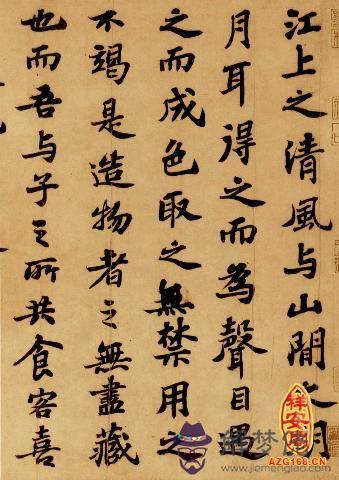 江上之清風与山間之明
月耳得之而為聲目遇
之而成色取之無禁用之
不竭是造物者之無盡藏
也而吾与子之所共食客喜
祥安阁
AZG166.CN
www.jiemenglao.com